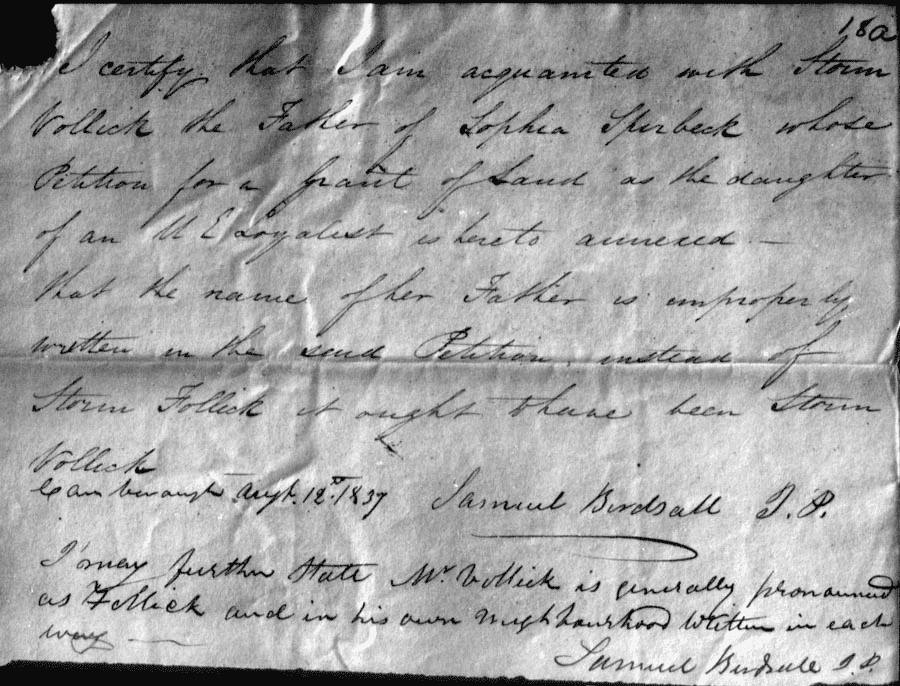 18a
I certify that I am acquainted with Storm
Vollick the Father of Sophia Sperbeck whose
Petition for a grant of Land as the daughter
of an U E Loyalist is hereto annexed —
that the name of her Father is improperly
written in the said Petition. instead of
Storm Follick it ought to have been Storm
Vollick
Canborough Augt. 12th 1837 Samuel Birdsall J.P.
I may further State Mr. Vollick is generally pronounced
as Follick and in his own neighbourhood written in each
way —
Samuel Birdsall J.P.